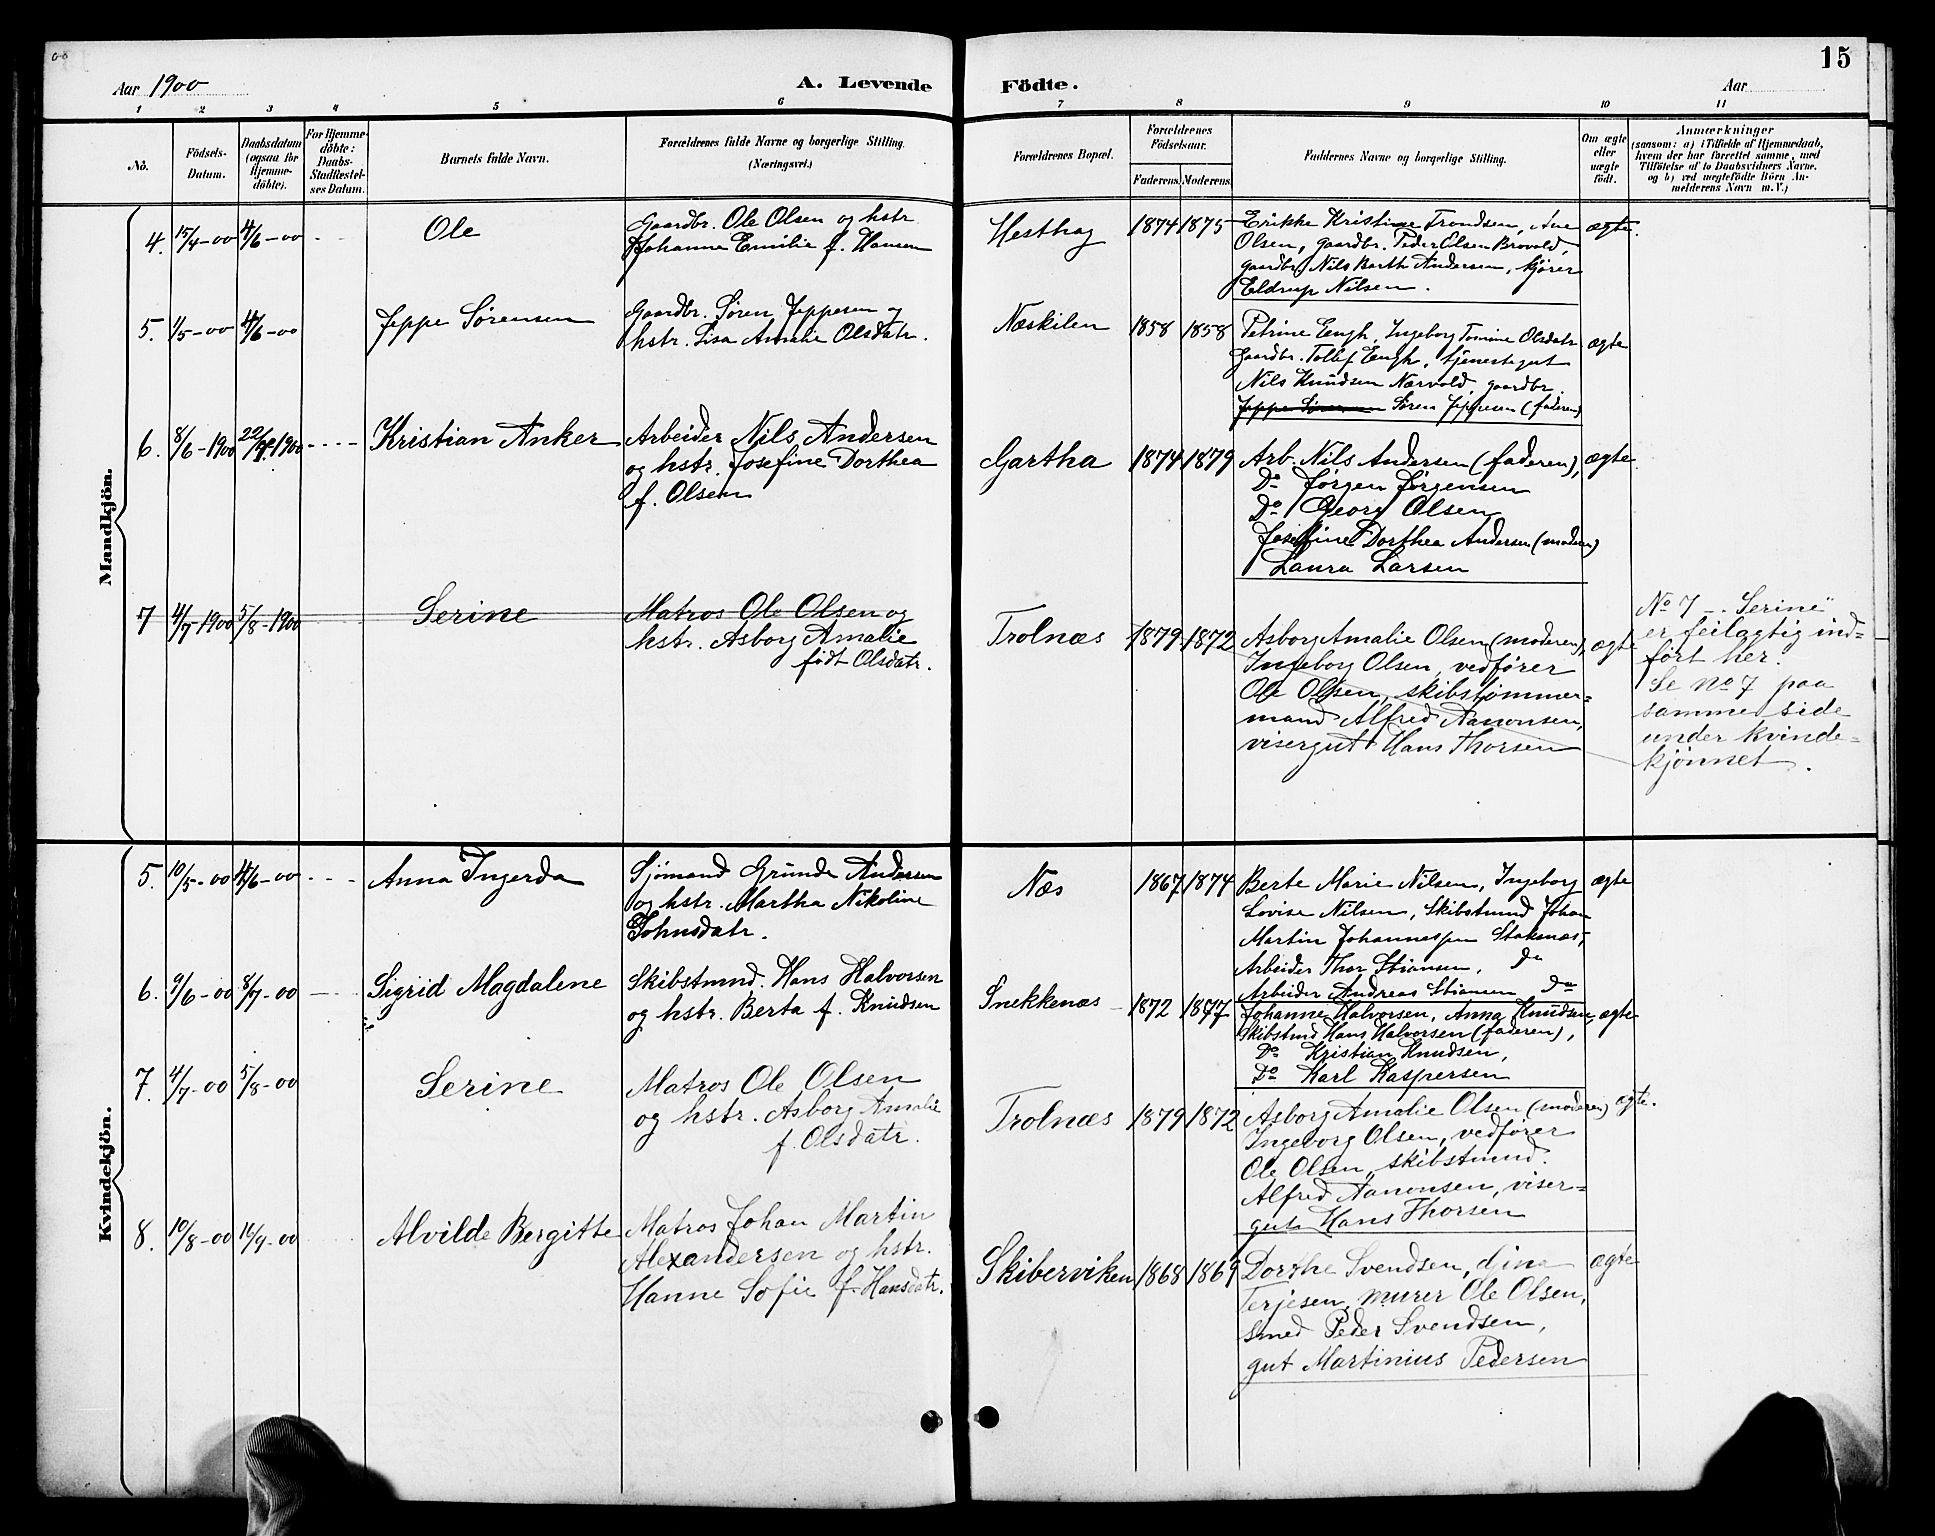 15
Aar 1900
A. Levende Födte.
Aar
1 2 3 4 5 6 7 8 9 10 11
No.
Födsels-Datum.
Daabsdatum (ogsaa for Hjemme-döbte).
For Hjemme-döbte: Daabs-Stadfæstel-ses Datum.
Barnets fulde Navn.
Forældrenes fulde Navne og borgerlige Stilling. (Næringsvei.)
Forældrenes Bopæl.
Forældrenes Födselsaar.
Faderens. Moderens.
Faddernes Navne og borgerlige Stilling.
Om ægte eller uægte født.
Anmærkninger
(saasom: a) i Tilfælde af Hjemmedaab, hvem der har forrettet samme, med Tilföielse af to Daabsvidners Navne, og b) ved uægtefödte Börn An-melderens Navn m. V.)
Mandkjön.
4. 15/4-00 4/6-00 Ole
Gaardbr. Ole Olsen og hstr
Johanne Emilie f. Hansen
Hesthag 1874 1875
Erikke Kristine Trondsen,
Olsen, gaardbr. Peder Olsen Brovold,
gaardbr. Nils Barth Andersen, kjører
Eldrup Nilsen.
ægte.
5. 1/5-00 4/6-00 Jeppe Sørensen
Gaardbr. Søren Jeppesen og
hstr. Lisa Amalie Olsdatr.
Næskilen 1858 1858
Petrine Eengh, Ingeborg Tomine Olsdatr
Gaardbr. Tollef Eengh, tjenestegut
Nils Knudsen Narvold, gaardbr.
Jeppe Sørensen Søren Jeppesen (faderen)
ægte
6. 8/6-1900 22/7-1900 Kristian Anker
Arbeider Nils Andersen
og hstr. Josefine Dorthea
f. Olsen
Gartha 1874 1879
Arb. Nils Andersen (faderen),
Do Jørgen Jørgensen
Do Georg Olsen
Josefine Dorthea Andersen (moderen)
Laura Larsen
ægte.
7 4/7-1900 5/8-1900 Serine
Matros Ole Olsen og
hstr. Asborg Amalie
født Olsdatr.
Trolnæs 1879 1872
Asborg Amalie Olsen (moderen),
Ingeborg Olsen, vedfører
Ole Olsen, skibstømmer=
mand Alfred Aanonsen,
visergut Hans Thorsen
ægte
No 7 - "Serine"
er feilagtig ind=
ført her.
Se no 7 paa
samme side
under kvinde=
kjønnet.
Kvindekjön.
5. 10/5-00 4/6-00 Anna Ingerda
Sjömand Grunde Andersen
og hstr. Martha Nikoline
Johnsdatr.
Næs 1867 1874
Berte Marie Nilsen, Ingeborg
Lovise Nilsen, Skibstmd Johan
Martin Johannessen Staknæs,
Arbeider Thor Stiansen, Do
Arbeider Andreas Stiansen Do
ægte
6. 9/6-00 8/7-00 Sigrid Magdalene
Skibstmnd. Hans Halvorsen
og hstr. Berta f. Knudsen
Snekkenæs 1872 1877
Johanne Halvorsen, Anna Knudsen,
Skibstmd Hans Halvorsen (faderen),
Do Kristian Knudsen,
Do Karl Kaspersen
ægte
7. 4/7-00 5/8-00 Serine
Matros Ole Olsen
og hstr. Asborg Amalie
f. Olsdatr.
Trolnæs 1879 1872
Asborg Amalie Olsen (moderen)
Ingeborg Olsen, vedfører
Ole Olsen, skibstmnd.
Alfred Aanonsen, viser=
gut Hans Thorsen
ægte.
8. 10/8-00 16/9-00 Alvilde Bergitte
Matros Johan Martin
Alexandersen og hstr.
Hanne Sofie f. Hansdatr.
Skiberviken 1868 1869
Dorthe Svendsen, Dina
Terjesen, murer Ole Olsen,
smed Peder Svendsen,
gut Martinius Pedersen
ægte